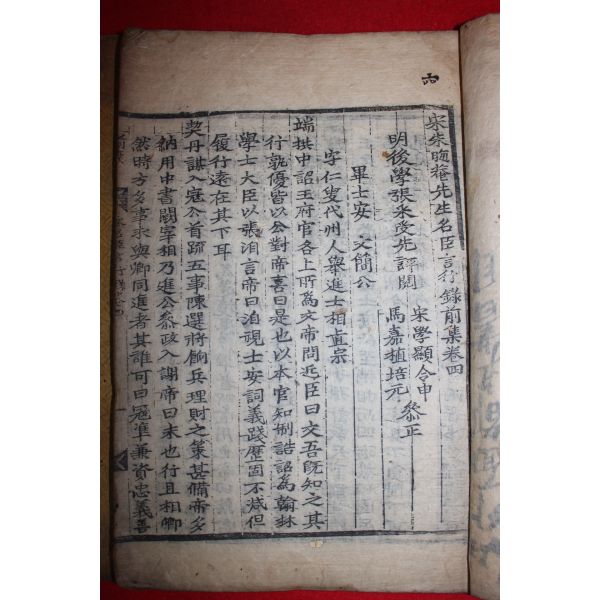 宋朱晦菴先生名臣言行錄前集卷四
明後學張采受先評閱
宋學顯令申
馬嘉植培元
叅正
畢士安 文簡公
字仁叟代州人擧進士相眞宗
端拱中詔王府官各上所爲文帝問近臣曰文吾旣知之其
行孰優皆以公對帝喜曰是也以本官知制誥詔爲翰林
學士大臣以張洎言帝曰洎視士安詞義踐歷固不减但
履行遠在其下耳
契丹謀入寇公首疏五事陳選將餉兵理財之策甚備帝多
納用中書闕宰相乃進公叅政入謝帝曰未也行且相卿
然時方多事求與卿同進者其誰可曰寇準兼資忠義善